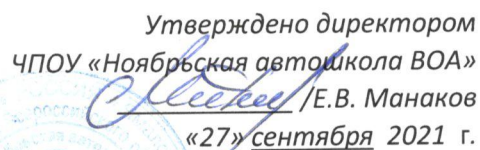 Утверждено директором
ЧПОУ «Ноябрьская автошкола ВОА»
/Е.В. Манаков
«27» сентября 2021 г.